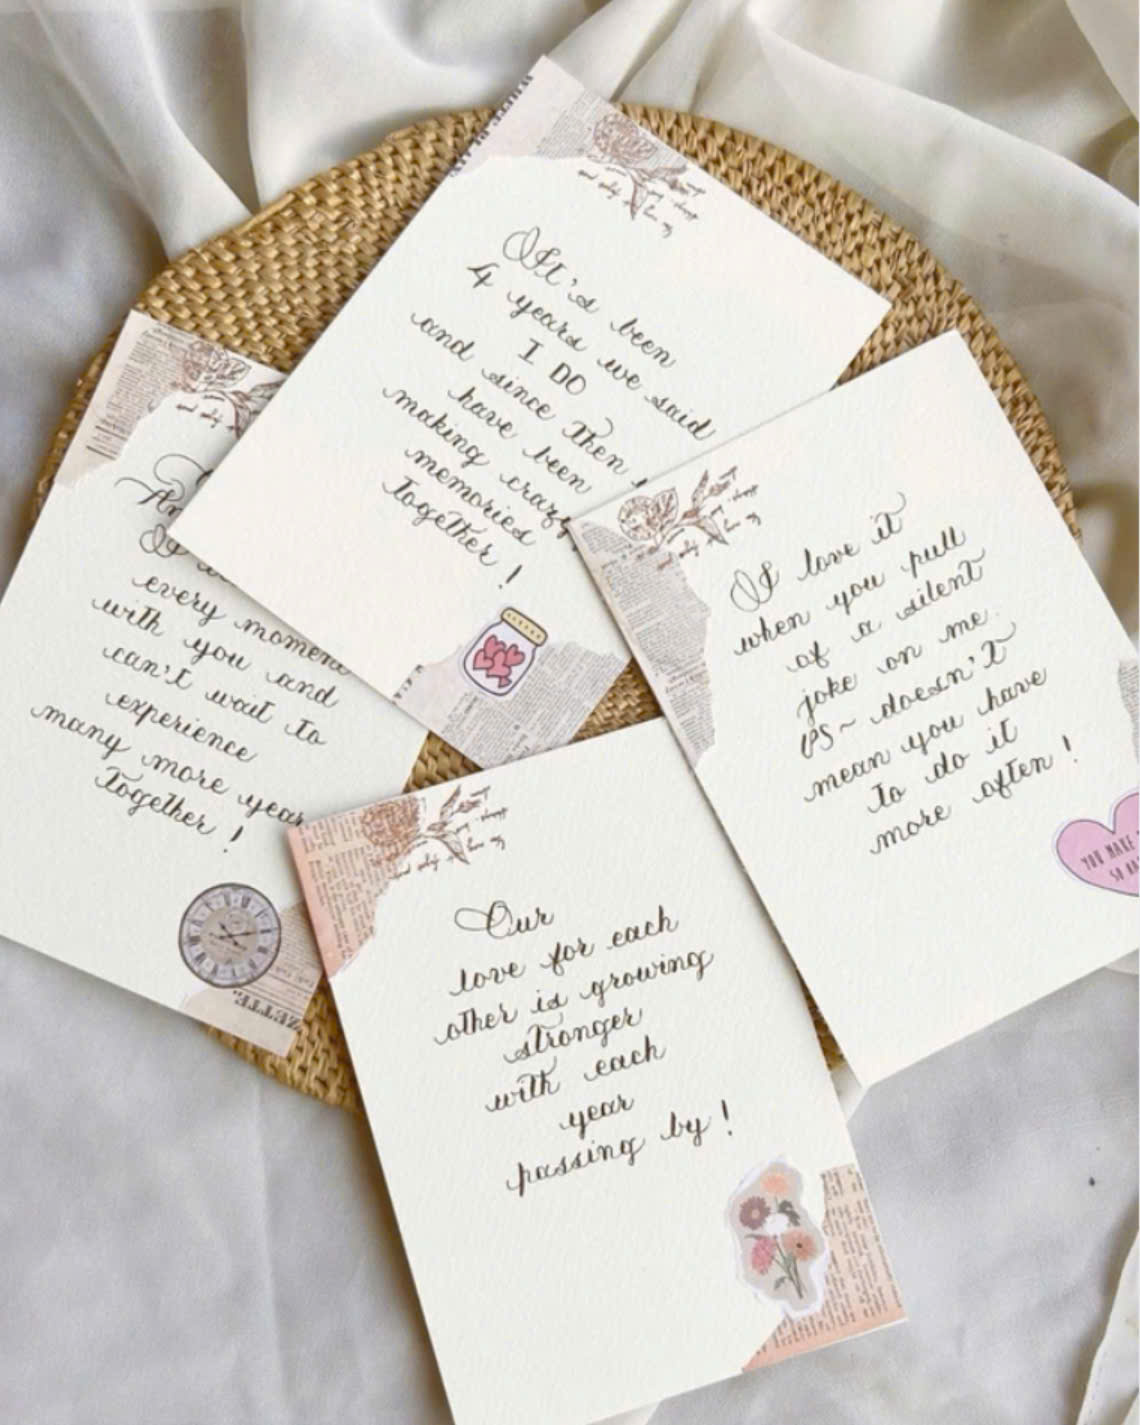 It's been
4 years we said
I DO
and since then
have been
making crazy
memories
together!
every moment
with you and
can't wait to
experience
many more year
together!
I love it
when you pull
of a silent
joke on me.
PS~ doesn't
mean you have
to do it
more often!
YOU MAKE
SO
Our
love for each
other is growing
stronger
with each
year
passing by!